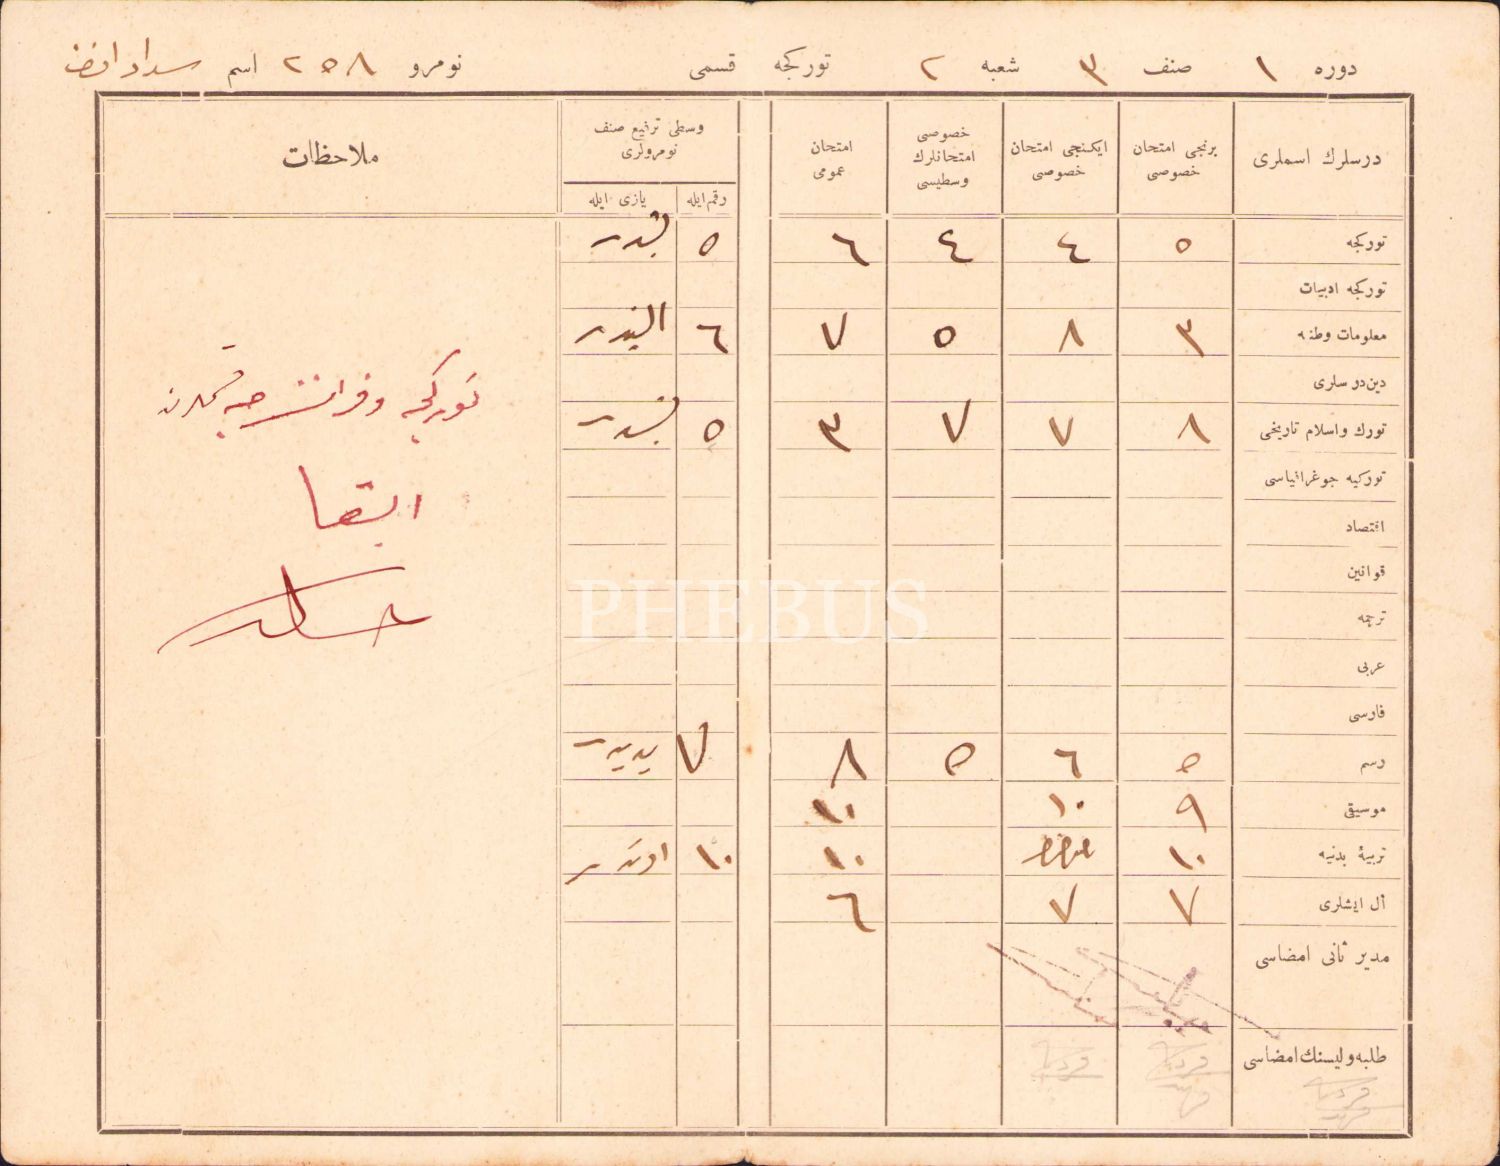 دوره ١ صنف ٣ شعبه ٢ توركجه قسمی نومرو ٢٥٨ اسم سداد افندی
درسلرك اسملری برنجی امتحان خصوصی ایكنجی امتحان خصوصی خصوصی امتحانلرك وسطیسی امتحان عمومی وسطی ترفیع صنف نومرولری ملاحظات
رقم ایله یازی ایله
توركجه ٥ ٤ ٤ ٦ ٥ بشدر
توركجه ادبیات
معلومات وطنیه ٣ ٨ ٥ ٧ ٦ التیدر
دین درسلری
تورك واسلام تاریخی ٨ ٧ ٧ ٣ ٥ بشدر
توركیه جوغرافیاسی
اقتصاد
قوانین
ترجمه
عربی
فارسی
رسم ٥ ٦ ٥ ٨ ٧ یدیدر
موسیقی ٩ ١٠ ١٠
تربیهٔ بدنیه ١٠ ١٠ ١٠ اوندر
أل ایشلری ٧ ٧ ٦
مدیر ثانی امضاسی
طلبه ولیسنك امضاسی
توركجه و فرانسزجه قسملردن
ابقا
PHEBUS